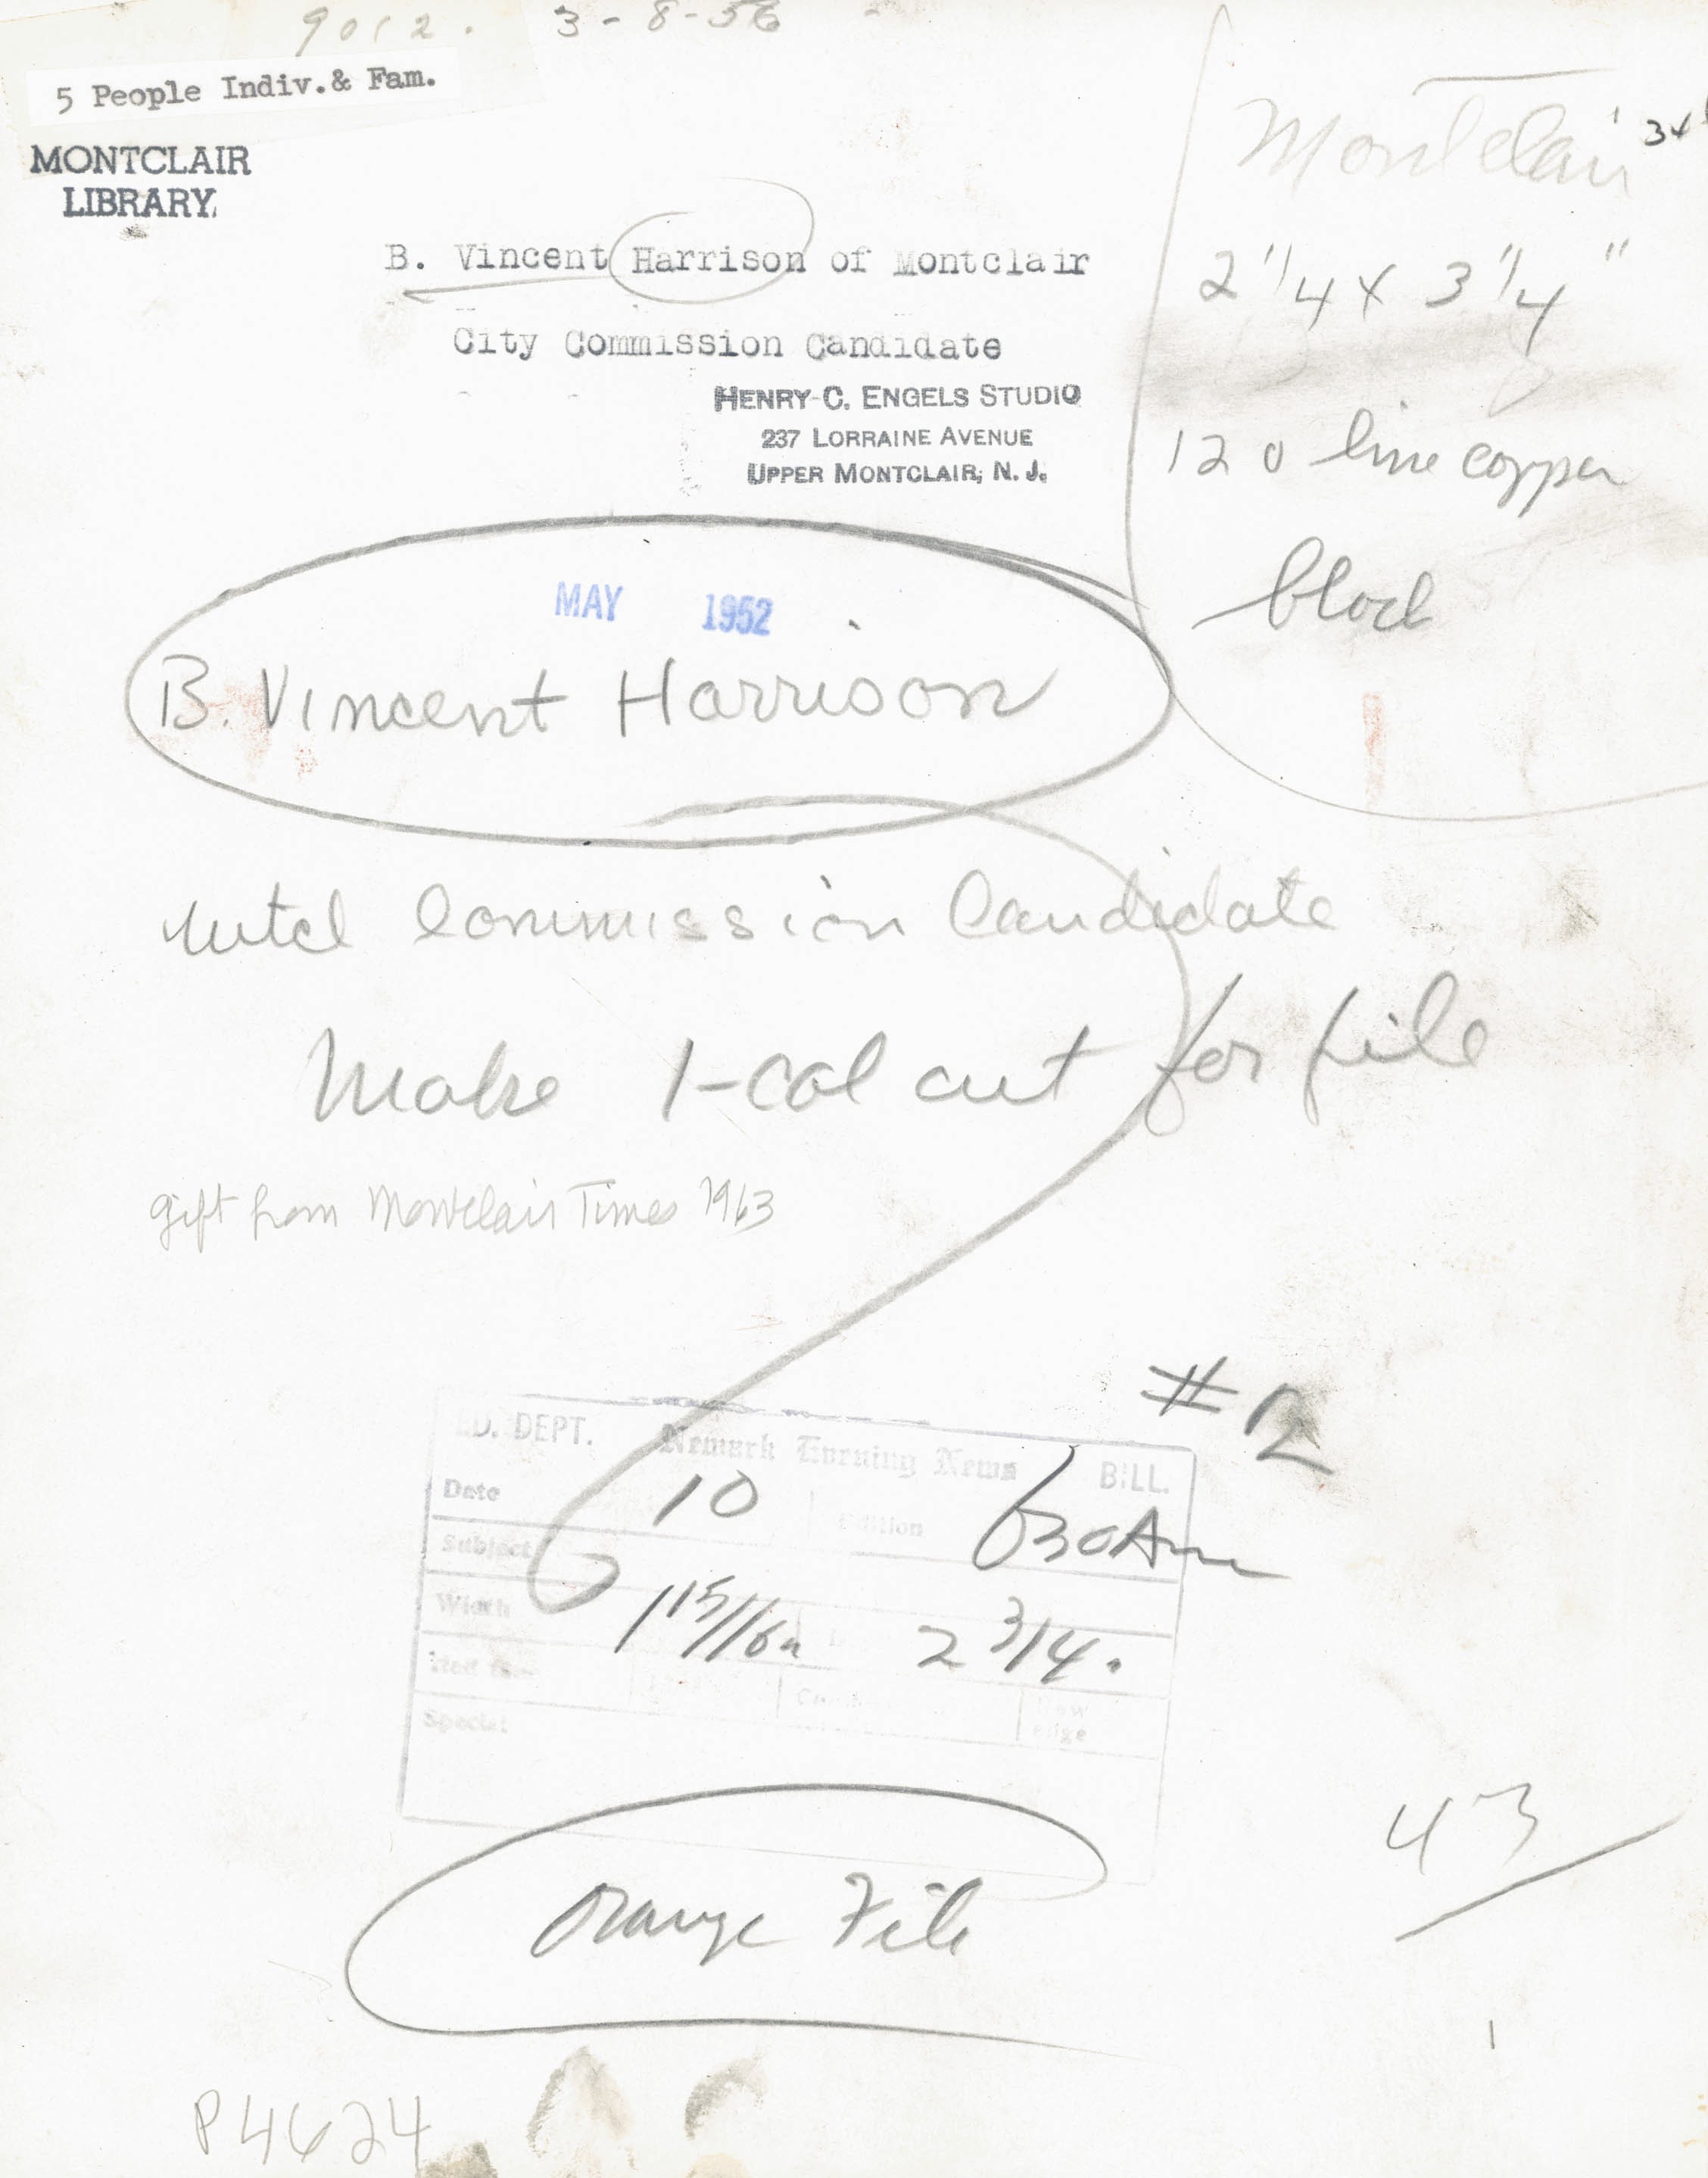 9012. 3-8-56
5 People Indiv.& Fam.
MONTCLAIR
LIBRARY.
Montclair
2 1/4 x 3 1/4"
120 line copper
block
B. Vincent Harrison of Montclair
City Commission Candidate
HENRY C. ENGELS STUDIO
237 LORRAINE AVENUE
UPPER MONTCLAIR, N. J.
MAY 1952
B. Vincent Harrison
Mtcl Commission Candidate
Make 1-col cut for file
gift from Montclair Times 1963
#2
D. DEPT. Newark Evening News BILL.
Date 10 Edition 630 Am
Subject
Width 1 15/16 2 3/4
Special
Edge
43
Orange File
P4624